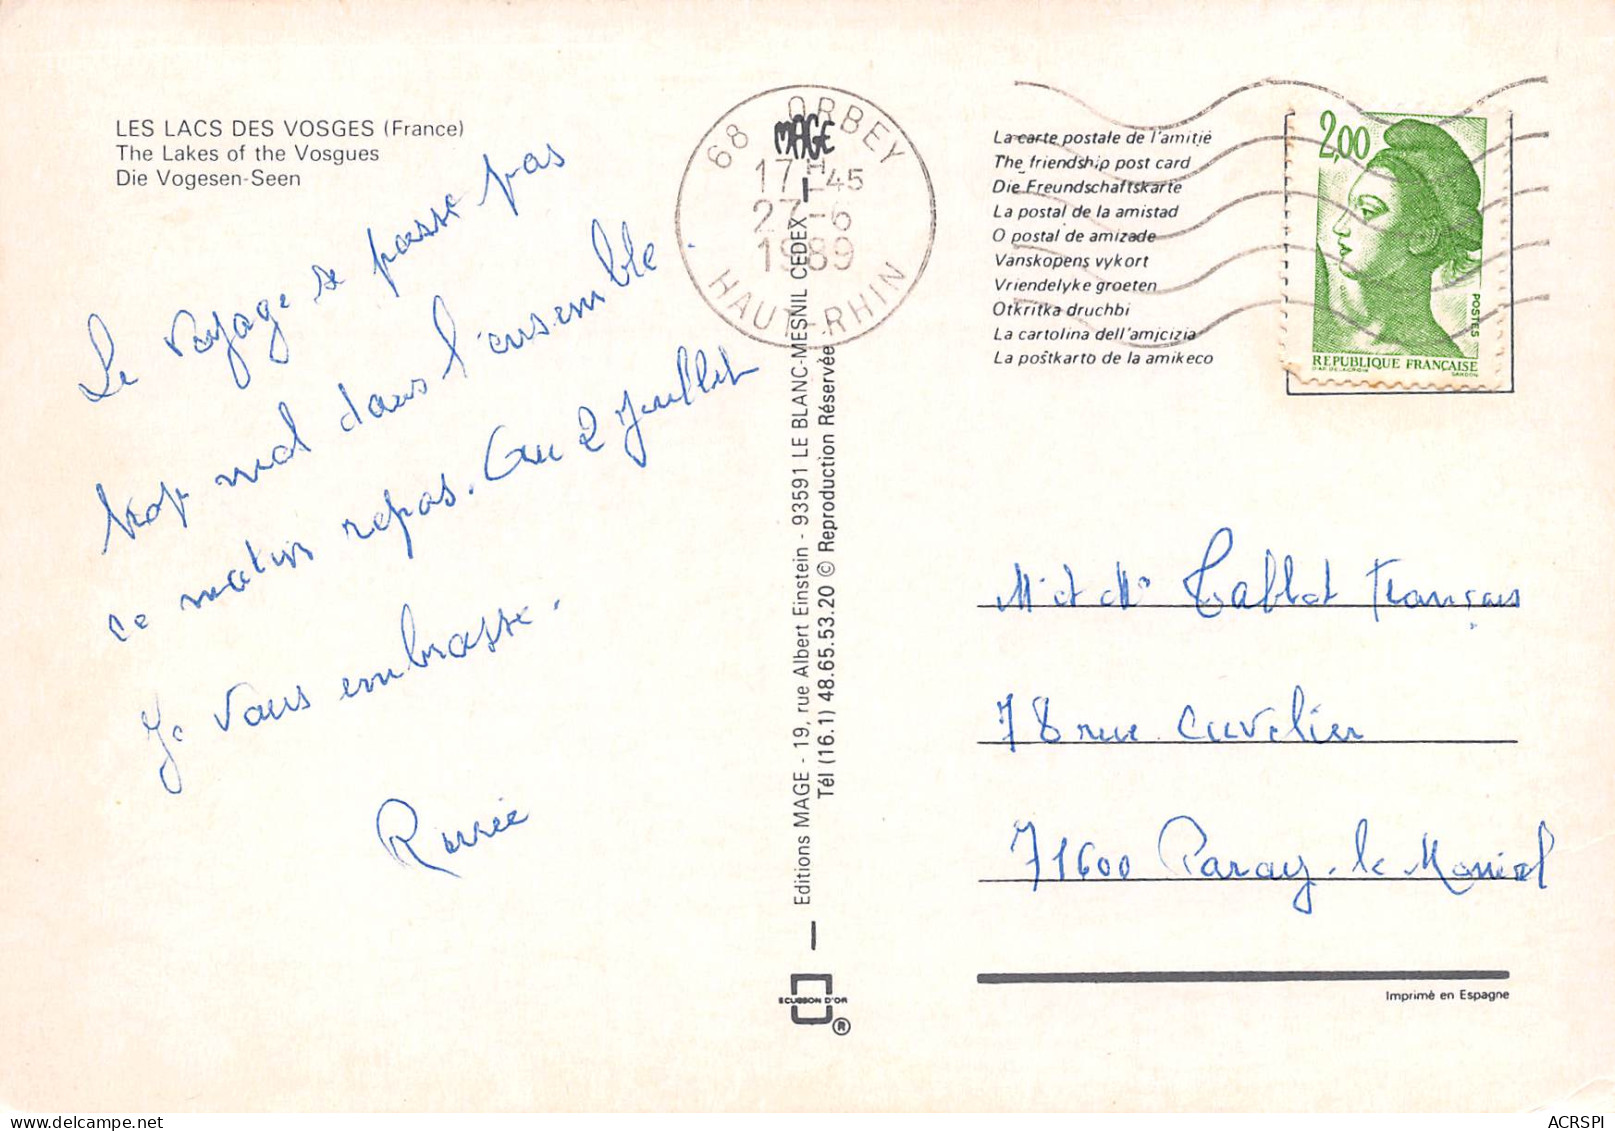 LES LACS DES VOSGES (France)
The Lakes of the Vosgues
Die Vogesen-Seen
Le voyage se passe pas
trop mal dans l'ensemble.
ce matin repos. Au 2 Juillet
Je vous embrasse.
68 ORBEY
17 H 45
27-6
1989
HAUT-RHIN
MAGE
Editions MAGE - 19, rue Albert Einstein - 93591 LE BLANC-MESNIL CEDEX
Tél (16.1) 48.65.53.20 © Reproduction Réservée
ECUSSON D'OR
®
La carte postale de l'amitié
The friendship post card
Die Freundschaftskarte
La postal de la amistad
O postal de amizade
Vanskopens vykort
Vriendelyke groeten
Otkritka druchbi
La cartolina dell'amicizia
La poŝtkarto de la amikeco
2,00
POSTES
REPUBLIQUE FRANÇAISE
D'AP. DELACROIX GANDON
Mr et Me Tablot François
78 rue Cuvelier
71600 Paray-le Monial
Imprimé en Espagne
ACRSPI